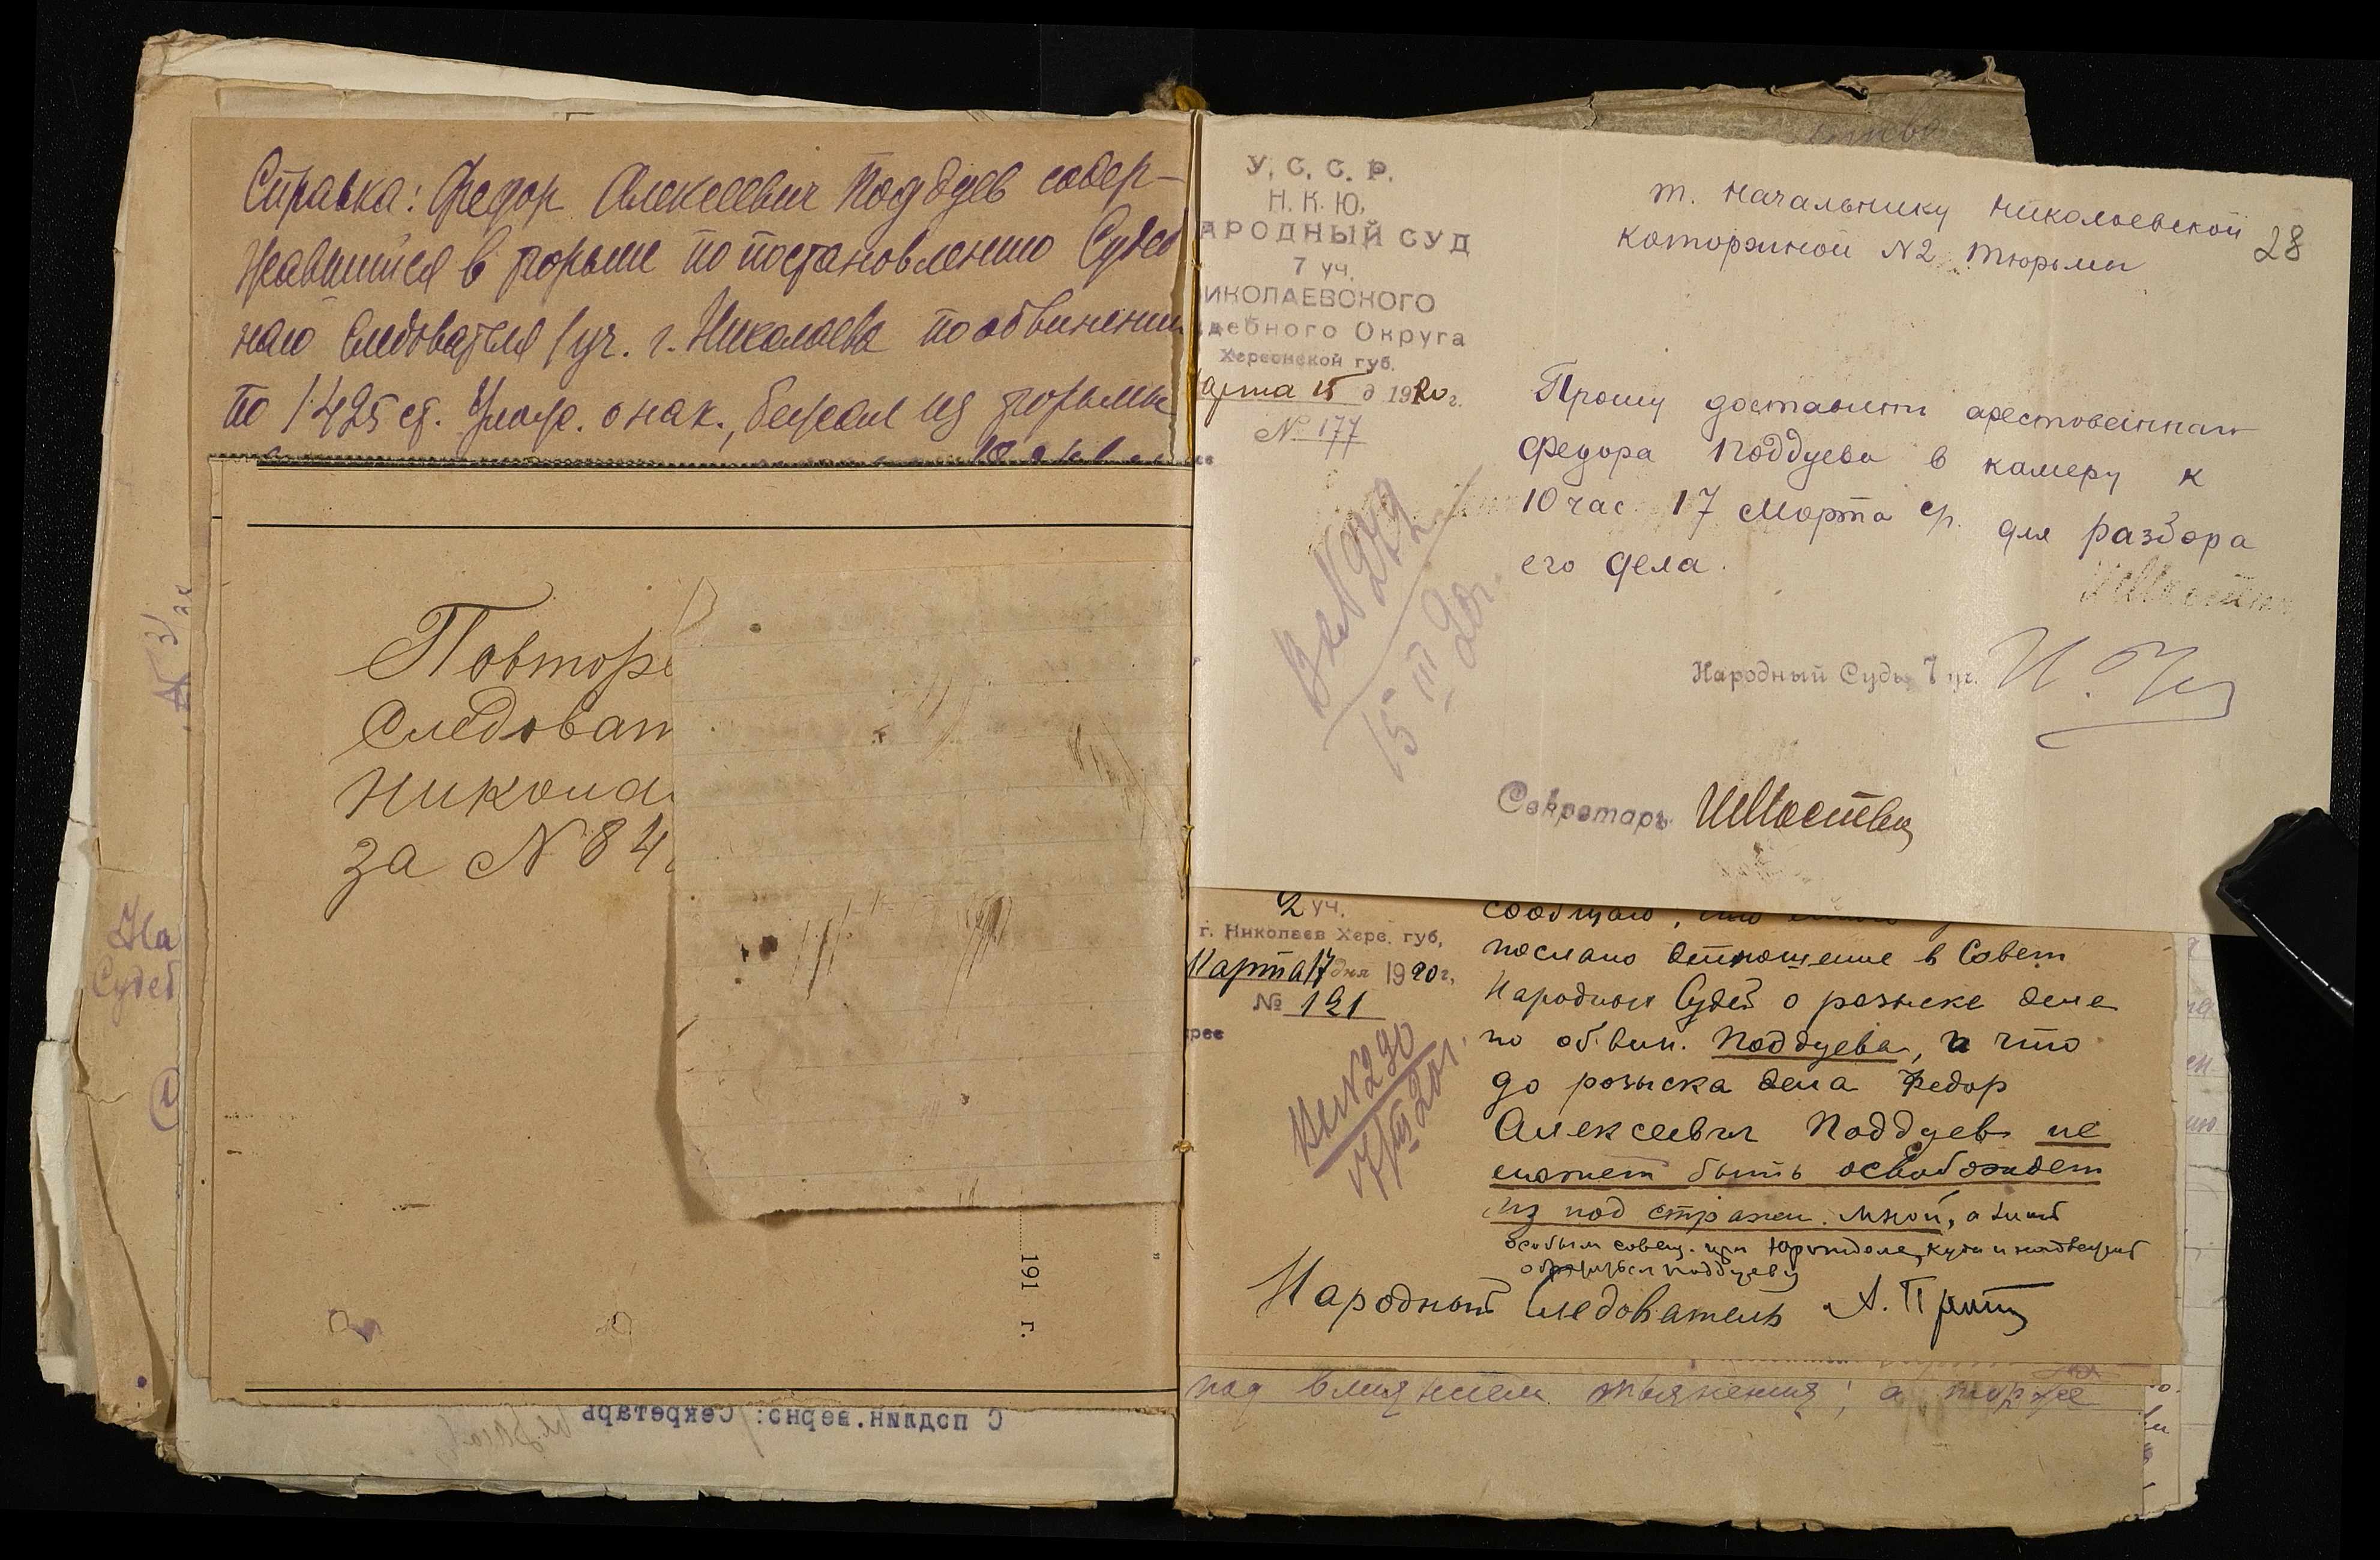 Справка: Федор Алексеевич Поддуев содер-
жавшийся в тюрьме по постановлению Судеб
наго Следователя 1 уч. г. Николаева по обвинению
по 1425 ст. Улож. о нак., бежал из тюрьмы
18
Повтор
Следоват
Никола
за № 84
191 г.
С подлин. верно: Секретарь
На
Судеб
У. С. С. Р.
Н. К. Ю.
АРОДНЫЙ СУД
7 уч.
ИКОЛАЕВСКОГО
дебного Округа
Херсонской губ.
арта 15 д 1920 г.
№ 177
Вх № 272
15 III 20 г.
т. Начальнику Николаевской
каторжной №2 тюрьмы
28
Прошу доставить арестованнаго
Федора Поддуева в камеру к
10 час 17 Марта ср. для разбора
его дела.
Народный Судья 7 уч.
Секретарь
2 уч.
г. Николаев Херс. губ,
Марта 17 дня 1920 г,
№ 191
рее
Вх № 290
17/III 20 г.
сообщаю, что
послано отношение в Совет
Народных Судей о розыске дела
по обвин. Поддуева, и что
до розыска дела Федор
Алексеевич Поддуев не
может быть освобожден
из под стражи мной, а лишь
особым совещ. при Юротделе, куда и надлежит
обратиться Поддуеву
Народный Следователь А.
под влиянием опьянения; а также